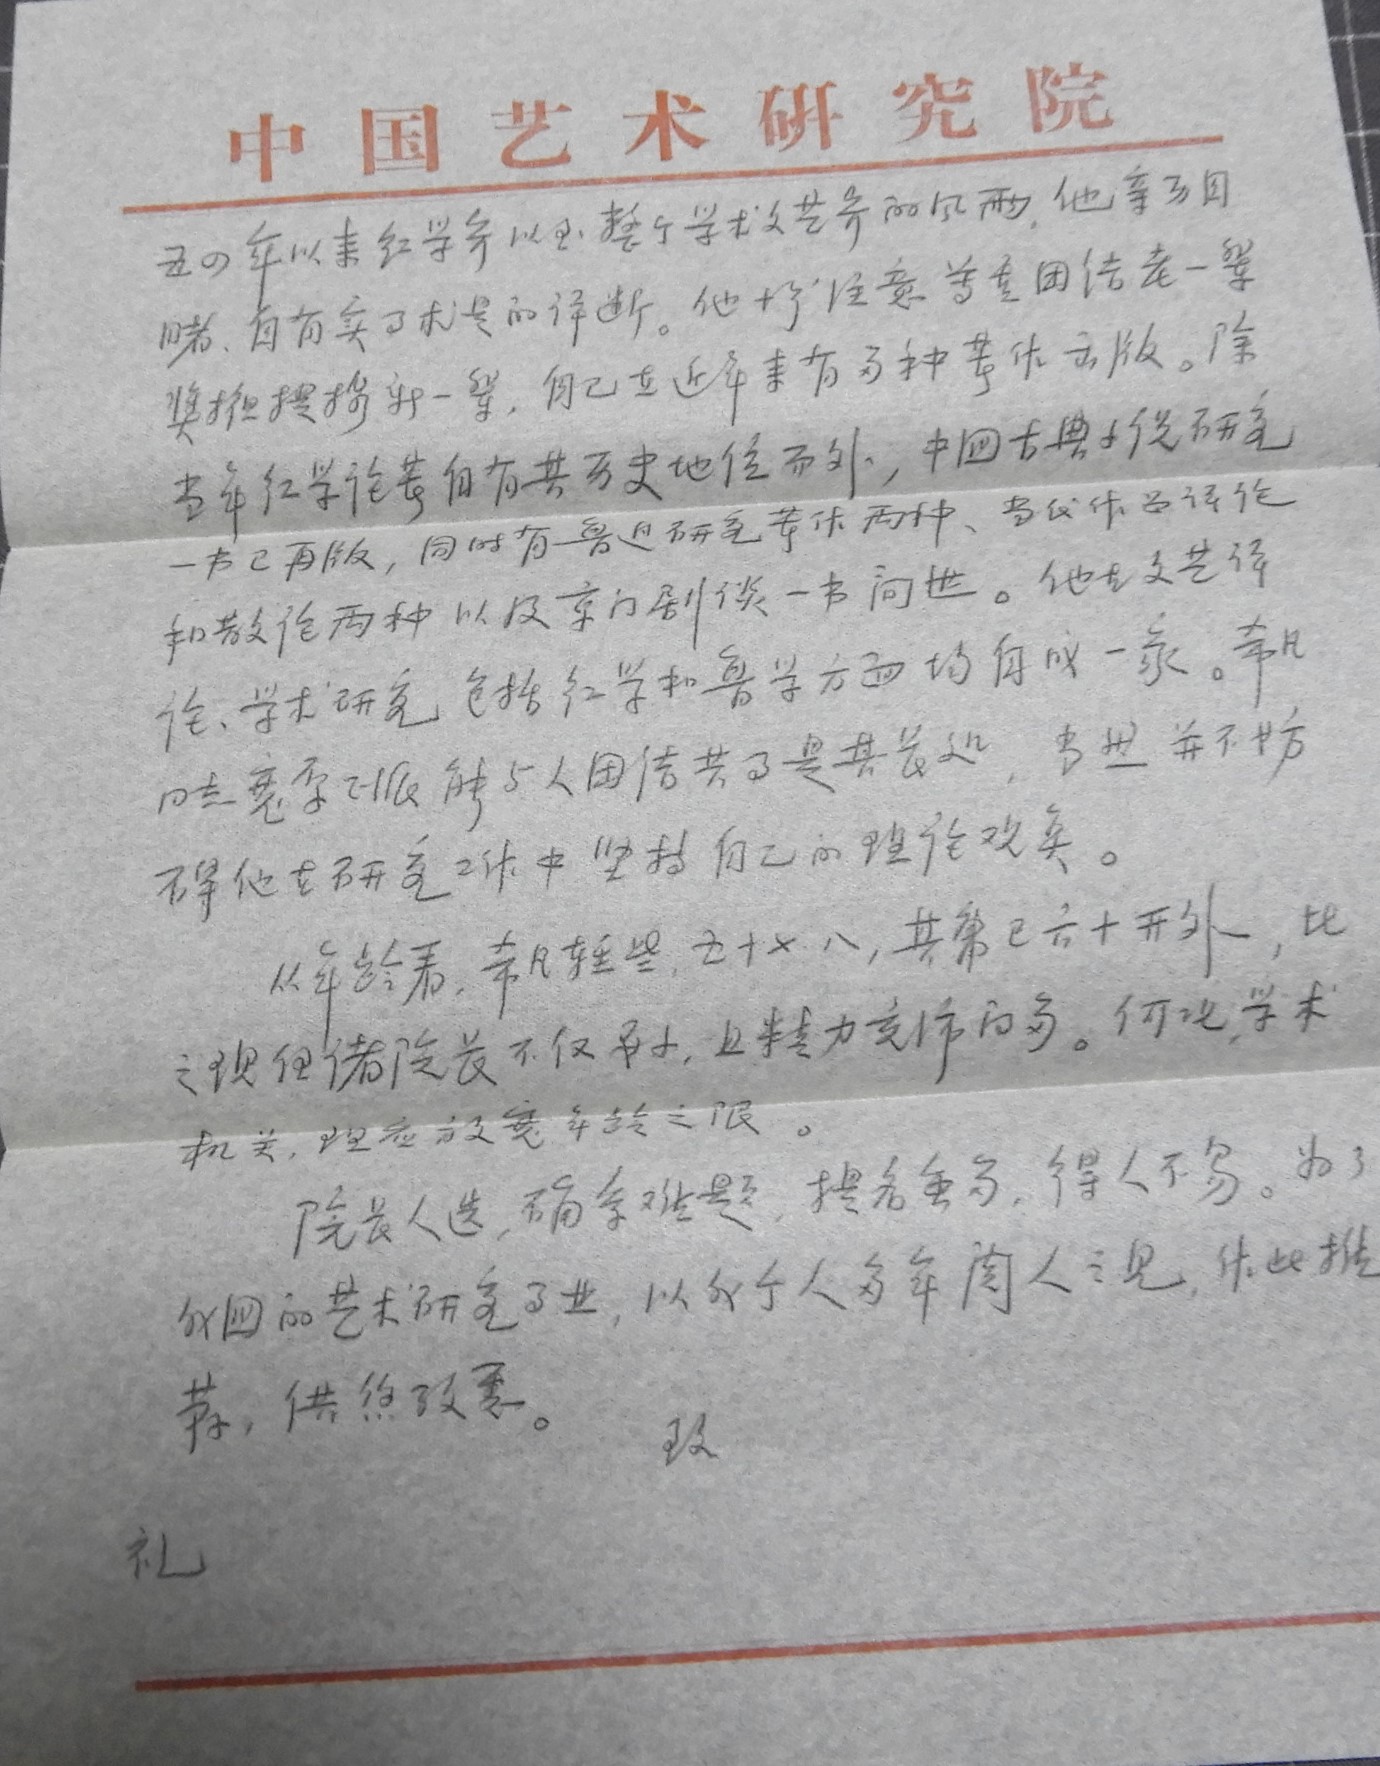 中国艺术研究院
五四年以来红学界以至整个学术文艺界的风雨，他亲历目
睹、自有实事求是的评断。他十分注意尊重团结老一辈
奖掖提携新一辈，自己在近年来有多种著作出版。除
当年红学论著自有其历史地位而外，中国古典小说研究
一书已再版，同时有鲁迅研究著作两种、当代作品评论
和散论两种以及京门剧谈一书问世。他在文艺评
论、学术研究包括红学和鲁学方面均自成一家。希凡
同志 能与人团结共事是其长处，当然并不妨
碍他在研究工作中坚持自己的理论观点。
从年龄看，希凡轻些，五十七八，其第已六十开外，比
之现任诸院长不仅 小，且精力充沛的多。何况，学术
机关，理应放宽年龄之限。
院长人选，确系难题，提名虽多，得人不易。为了
我国的艺术研究事业，以我个人多年阅人之见，作此推
荐，供您考虑。
致
礼